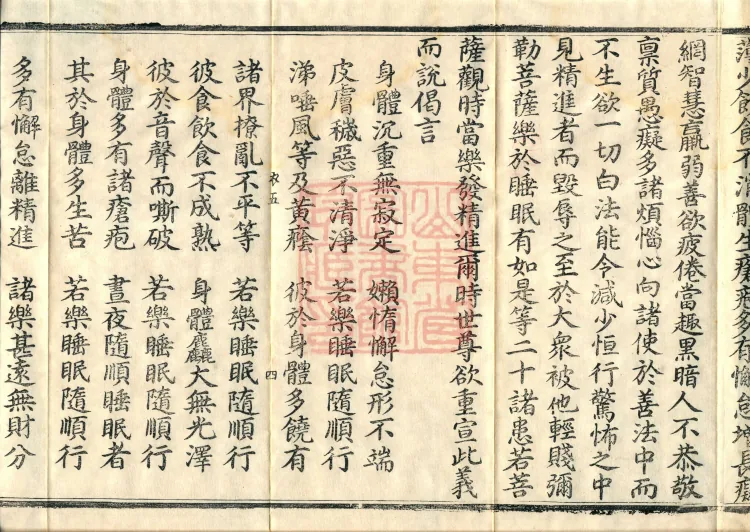 網智慧羸弱善欲疲倦當趣黑暗人不恭敬
稟質愚癡多諸煩惱心向諸使於善法中而
不生欲一切白法能令減少恒行驚怖之中
見精進者而毀辱之至於大眾被他輕賤彌
勒菩薩樂於睡眠有如是等二十諸患若菩
薩觀時當樂發精進爾時世尊欲重宣此義
而說偈言
身體沉重無寂定 嬾惰懈怠形不端
皮膚穢惡不清淨 若樂睡眠隨順行
涕唾風等及黃癊 彼於身體多饒有
衣五 四
諸界撩亂不平等 若樂睡眠隨順行
彼食飲食不成熟 身體麤大無光澤
彼於音聲而嘶破 若樂睡眠隨順行
身體多有諸瘡疱 晝夜隨順睡眠者
其於身體多生苦 若樂睡眠隨順行
多有懈怠離精進 諸樂甚遠無財分